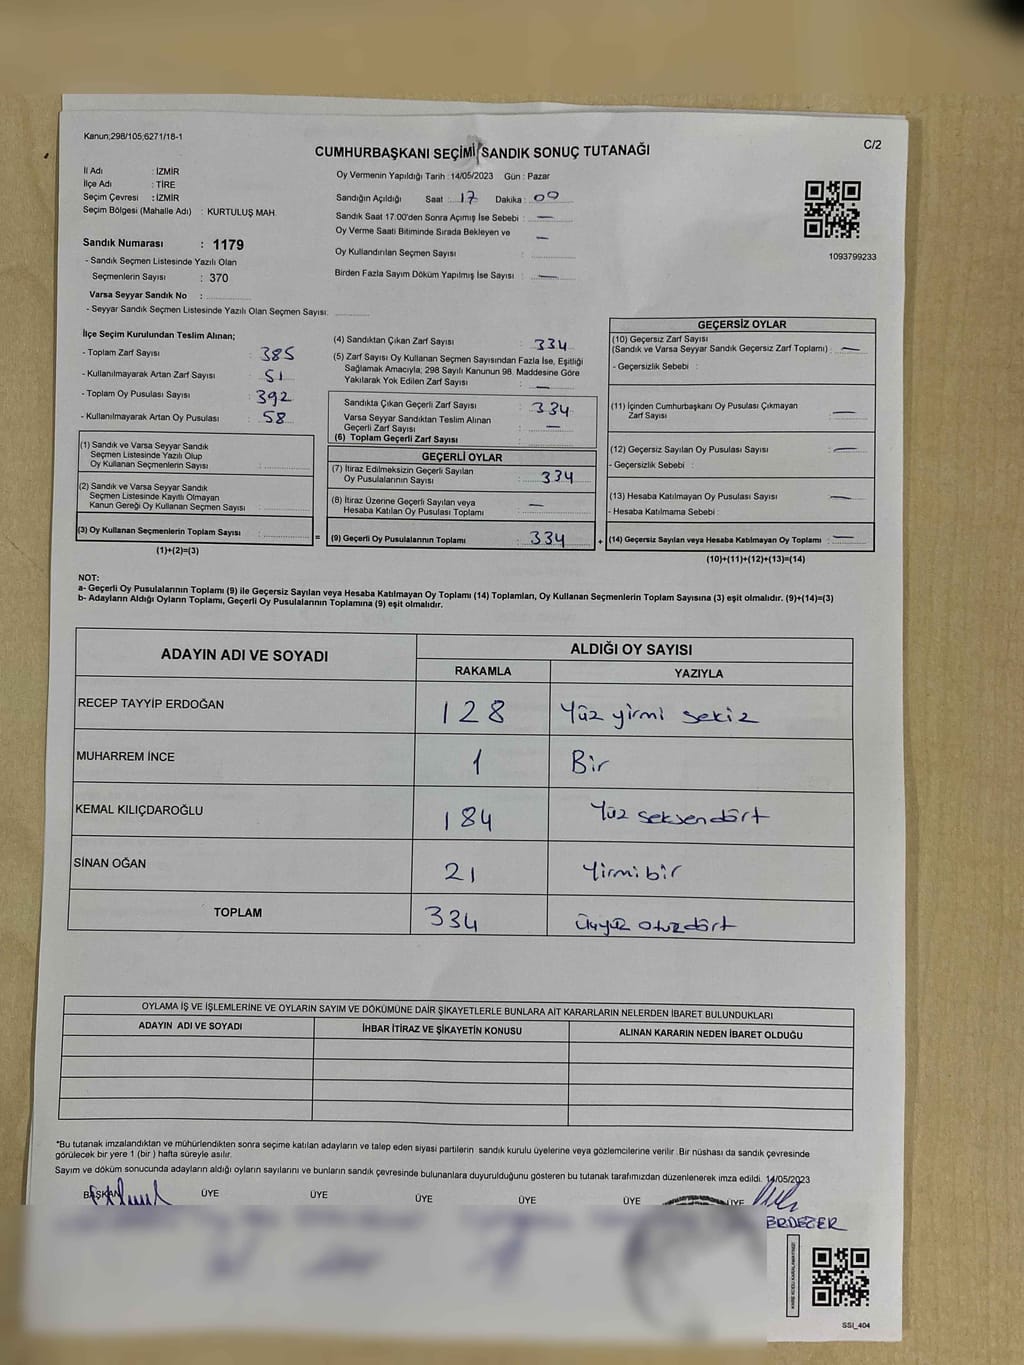 Kanun;298/105;6271/18-1
C/2
CUMHURBAŞKANI SEÇİMİ SANDIK SONUÇ TUTANAĞI
İl Adı : İZMİR
İlçe Adı : TİRE
Seçim Çevresi : İZMİR
Seçim Bölgesi (Mahalle Adı) : KURTULUŞ MAH.
Sandık Numarası : 1179
- Sandık Seçmen Listesinde Yazılı Olan
Seçmenlerin Sayısı : 370
Varsa Seyyar Sandık No :
- Seyyar Sandık Seçmen Listesinde Yazılı Olan Seçmen Sayısı:
Oy Vermenin Yapıldığı Tarih : 14/05/2023 Gün : Pazar
Sandığın Açıldığı Saat : 17 Dakika : 00
Sandık Saat 17:00'den Sonra Açımış İse Sebebi : —
Oy Verme Saati Bitiminde Sırada Bekleyen ve
Oy Kullandırılan Seçmen Sayısı : —
Birden Fazla Sayım Döküm Yapılmış İse Sayısı : —
1093799233
İlçe Seçim Kurulundan Teslim Alınan;
- Toplam Zarf Sayısı : 385
- Kullanılmayarak Artan Zarf Sayısı : 51
- Toplam Oy Pusulası Sayısı : 392
- Kullanılmayarak Artan Oy Pusulası : 58
(1) Sandık ve Varsa Seyyar Sandık
Seçmen Listesinde Yazılı Olup
Oy Kullanan Seçmenlerin Sayısı :
(2) Sandık ve Varsa Seyyar Sandık
Seçmen Listesinde Kayıtlı Olmayan
Kanun Gereği Oy Kullanan Seçmen Sayısı :
(3) Oy Kullanan Seçmenlerin Toplam Sayısı :
(1)+(2)=(3)
(4) Sandıktan Çıkan Zarf Sayısı : 334
(5) Zarf Sayısı Oy Kullanan Seçmen Sayısından Fazla İse, Eşitliği
Sağlamak Amacıyla; 298 Sayılı Kanunun 98. Maddesine Göre
Yakılarak Yok Edilen Zarf Sayısı : —
Sandıkta Çıkan Geçerli Zarf Sayısı : 334
Varsa Seyyar Sandıktan Teslim Alınan
Geçerli Zarf Sayısı : —
(6) Toplam Geçerli Zarf Sayısı :
GEÇERLİ OYLAR
(7) İtiraz Edilmeksizin Geçerli Sayılan
Oy Pusulasının Sayısı : 334
(8) İtiraz Üzerine Geçerli Sayılan veya
Hesaba Katılan Oy Pusulası Toplamı : —
= (9) Geçerli Oy Pusulalarının Toplamı : 334 +
GEÇERSİZ OYLAR
(10) Geçersiz Zarf Sayısı
(Sandık ve Varsa Seyyar Sandık Geçersiz Zarf Toplamı) : —
- Geçersizlik Sebebi :
(11) İçinden Cumhurbaşkanı Oy Pusulası Çıkmayan
Zarf Sayısı : —
(12) Geçersiz Sayılan Oy Pusulası Sayısı : —
- Geçersizlik Sebebi :
(13) Hesaba Katılmayan Oy Pusulası Sayısı : —
- Hesaba Katılmama Sebebi :
(14) Geçersiz Sayılan veya Hesaba Katılmayan Oy Toplamı : —
(10)+(11)+(12)+(13)=(14)
NOT:
a- Geçerli Oy Pusulalarının Toplamı (9) ile Geçersiz Sayılan veya Hesaba Katılmayan Oy Toplamı (14) Toplamları, Oy Kullanan Seçmenlerin Toplam Sayısına (3) eşit olmalıdır. (9)+(14)=(3)
b- Adayların Aldığı Oyların Toplamı, Geçerli Oy Pusulalarının Toplamına (9) eşit olmalıdır.
ADAYIN ADI VE SOYADI
ALDIĞI OY SAYISI
RAKAMLA YAZIYLA
RECEP TAYYİP ERDOĞAN 128 Yüz yirmi sekiz
MUHARREM İNCE 1 Bir
KEMAL KILIÇDAROĞLU 184 Yüz seksendört
SİNAN OĞAN 21 Yirmibir
TOPLAM 334 üçyüz otuzdört
OYLAMA İŞ VE İŞLEMLERİNE VE OYLARIN SAYIM VE DÖKÜMÜNE DAİR ŞİKAYETLERLE BUNLARA AİT KARARLARIN NELERDEN İBARET BULUNDUKLARI
ADAYIN ADI VE SOYADI İHBAR İTİRAZ VE ŞİKAYETİN KONUSU ALINAN KARARIN NEDEN İBARET OLDUĞU
*Bu tutanak imzalandıktan ve mühürlendikten sonra seçime katılan adayların ve talep eden siyasi partilerin sandık kurulu üyelerine veya gözlemcilerine verilir .Bir nüshası da sandık çevresinde
görülecek bir yere 1 (bir ) hafta süreyle asılır.
Sayım ve döküm sonucunda adayların aldığı oyların sayılarını ve bunların sandık çevresinde bulunanlara duyurulduğunu gösteren bu tutanak tarafımızdan düzenlenerek imza edildi. 14/05/2023
BAŞKAN ÜYE ÜYE ÜYE ÜYE ÜYE ÜYE
ERDEZER
KARE KODU KARALAMAYINIZ!
SSI_404